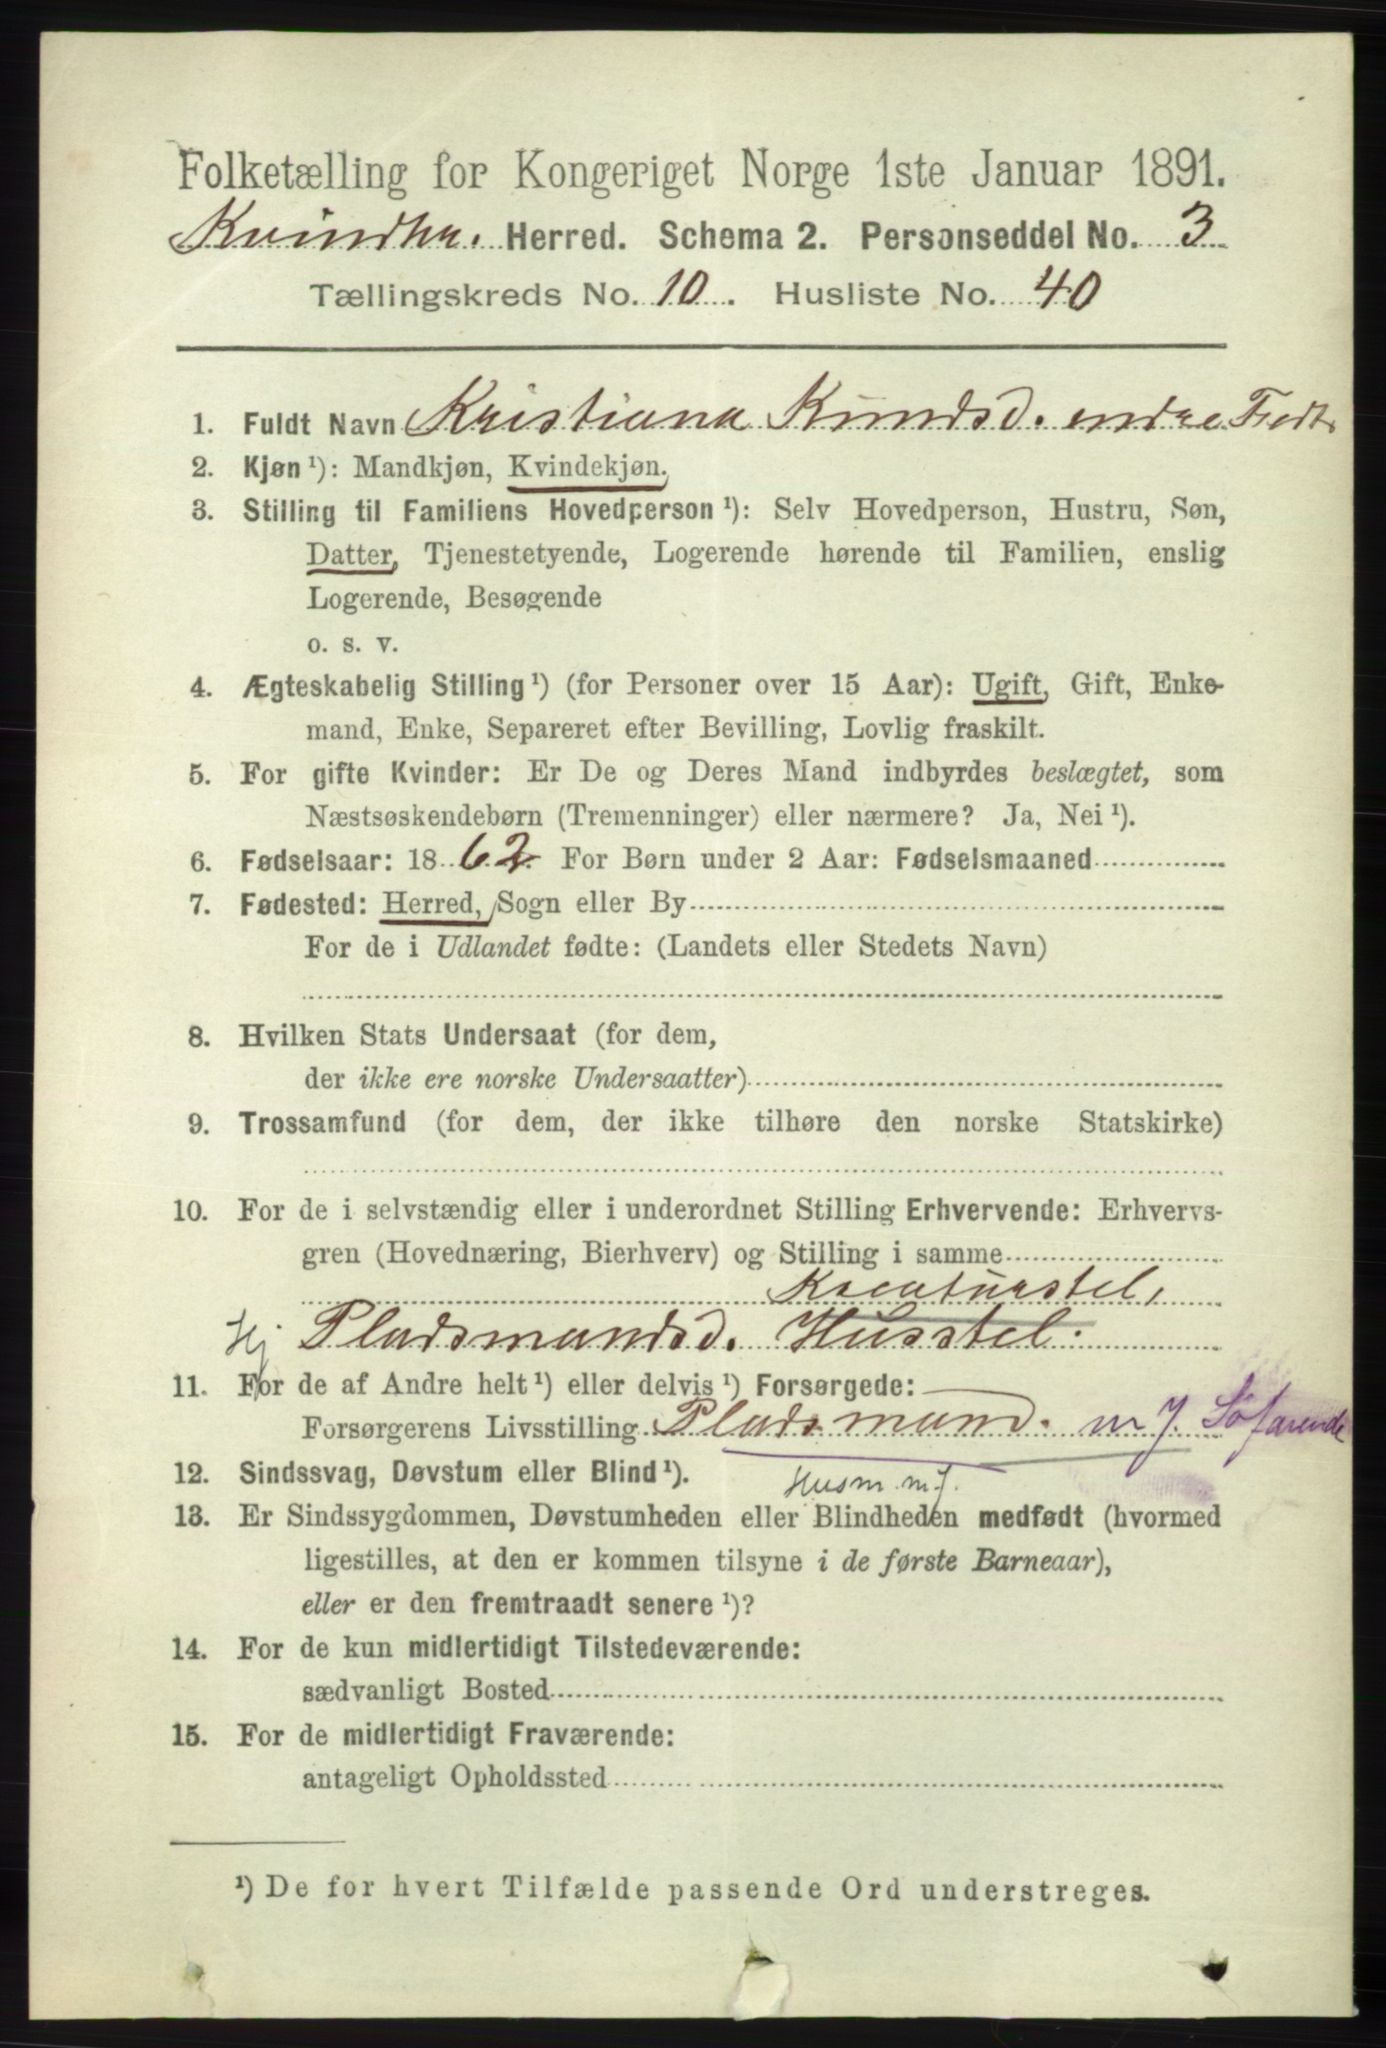 Folketælling for Kongeriget Norge 1ste Januar 1891.
Kvindhr. Herred. Schema 2. Personseddel No. 3
Tællingskreds No. 10. Husliste No. 40
1. Fuldt Navn Kristiana Knudsd. indre Tredt
2. Kjøn ¹): Mandkjøn, Kvindekjøn.
3. Stilling til Familiens Hovedperson ¹): Selv Hovedperson, Hustru, Søn,
Datter, Tjenestetyende, Logerende hørende til Familien, enslig
Logerende, Besøgende
o. s. v.
4. Ægteskabelig Stilling ¹) (for Personer over 15 Aar): Ugift, Gift, Enke-
mand, Enke, Separeret efter Bevilling, Lovlig fraskilt.
5. For gifte Kvinder: Er De og Deres Mand indbyrdes beslægtet, som
Næstsøskendebørn (Tremenninger) eller nærmere? Ja, Nei ¹).
6. Fødselsaar: 1862. For Børn under 2 Aar: Fødselsmaaned
7. Fødested: Herred, Sogn eller By
For de i Udlandet fødte: (Landets eller Stedets Navn)
8. Hvilken Stats Undersaat (for dem,
der ikke ere norske Undersaatter)
9. Trossamfund (for dem, der ikke tilhøre den norske Statskirke)
10. For de i selvstændig eller i underordnet Stilling Erhvervende: Erhvervs-
gren (Hovednæring, Bierhverv) og Stilling i samme
Kreaturstel,
Hj Pladsmandsd. Husstel.
11. For de af Andre helt ¹) eller delvis ¹) Forsørgede:
Forsørgerens Livsstilling Pladsmand. m J. Søfarende
12. Sindssvag, Døvstum eller Blind ¹).
Husm. m J.
13. Er Sindssygdommen, Døvstumheden eller Blindheden medfødt (hvormed
ligestilles, at den er kommen tilsyne i de første Barneaar),
eller er den fremtraadt senere ¹)?
14. For de kun midlertidigt Tilstedeværende:
sædvanligt Bosted
15. For de midlertidigt Fraværende:
antageligt Opholdssted
¹) De for hvert Tilfælde passende Ord understreges.